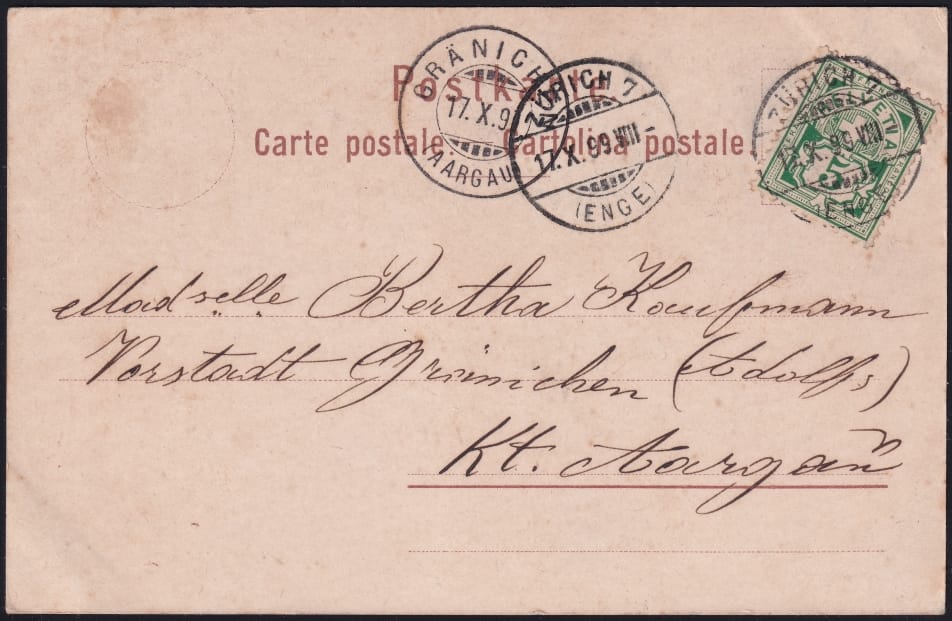 Postkarte
Carte postale. Cartolina postale.
GRÄNICHEN
17.X.9
(AARGAU)
ZÜRICH 7
17.X.99.VIII
(ENGE)
HELVETIA
5
Madselle Bertha Kaufmann
Vorstadt Gränichen (Adolfs)
Kt. Aargau